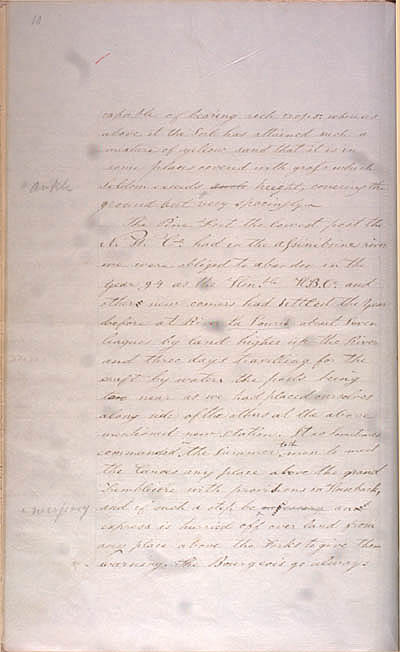 10
capable of bearing rich crops: whereas
above it the Soil has attained such a
mixture of yellow sand that it is in
some places covered with grass which
ankle
seldom exceeds height, covering the
ground but very sparingly.
The Pine Fort the lowest post the
N. W. Co. had in the Assiniboine river
we were obliged to abandon in the
Year 94 as the Honble. H.B.Co. and
others new comers had settled the Year
before at River la Souris about Seven
leagues by land higher up the River
and three days travelling for the
craft by water, the posts being
near as we had placed ourselves
along side of the others at the above
mentioned new station. It so
commanded the Summer men to meet
with
the Canoes any place above the grand
with provisions on Horseback,
emergency
and if such a step be an
express is hurried off over land from
any place above the Forks to give them
warning. The Bourgeois go always